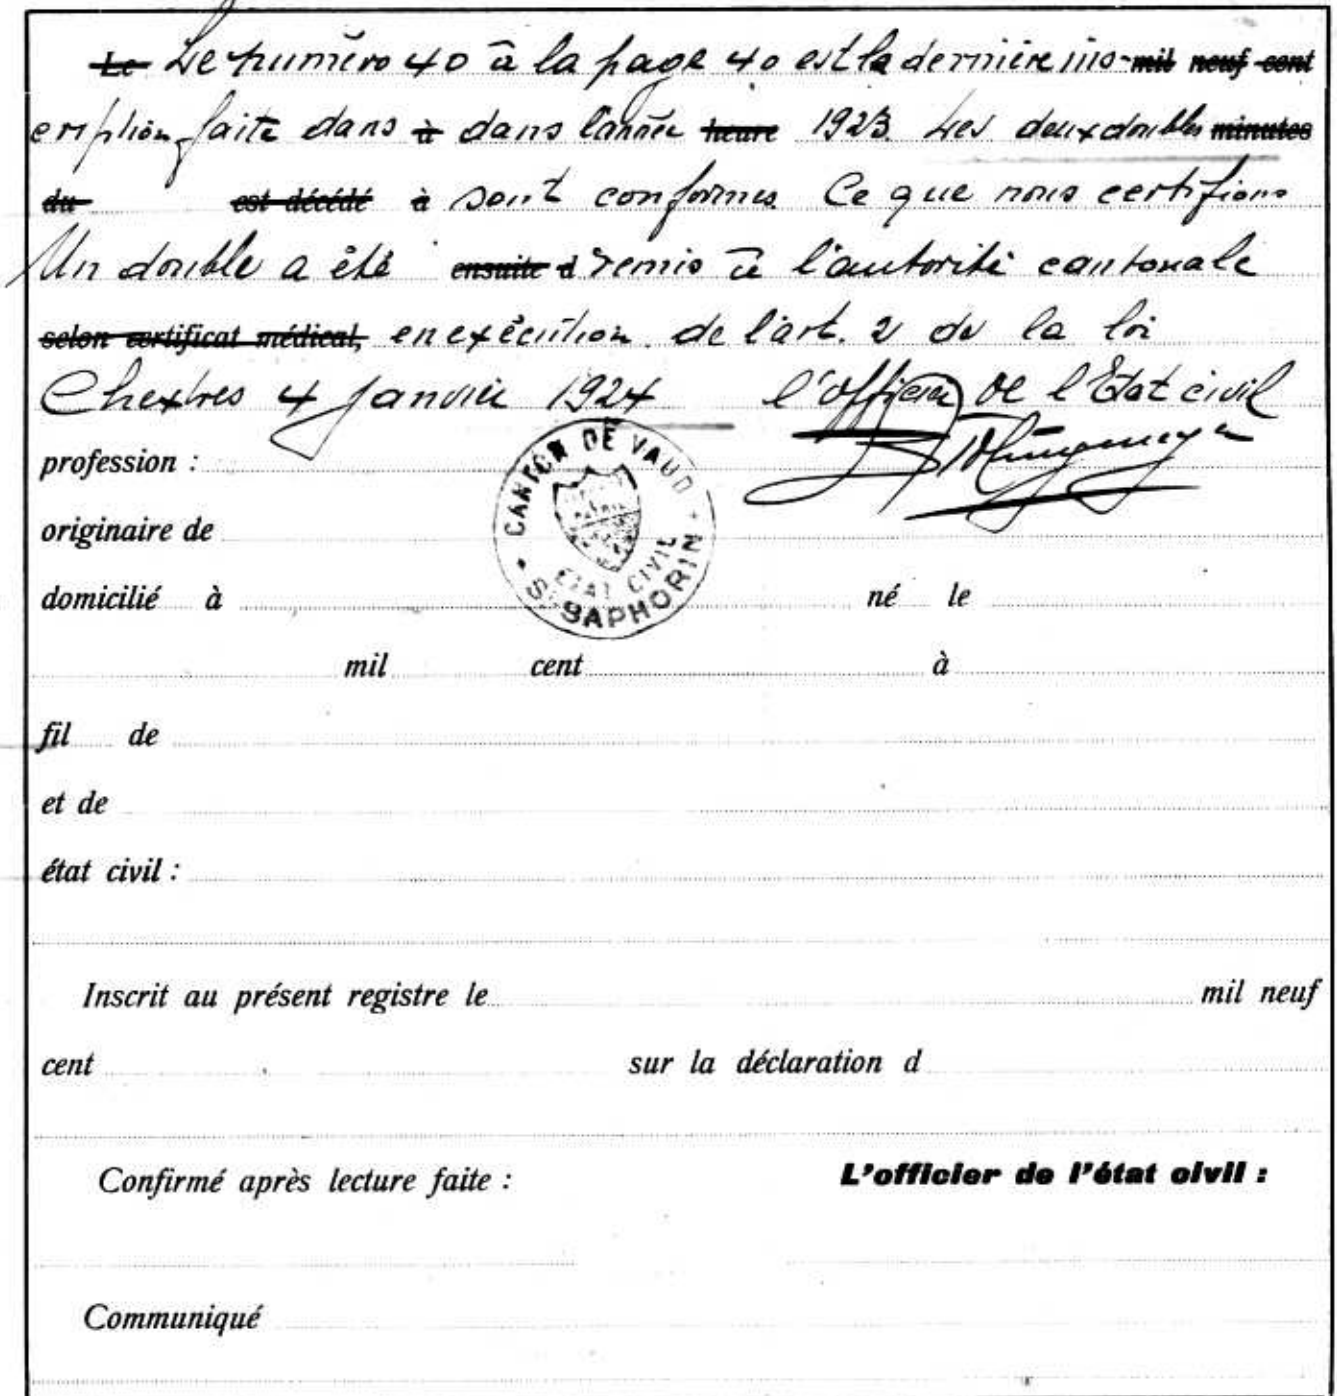 Le Le numéro 40 à la page 40 est la dernière ins- mil neuf cent
cription faite dans à dans l'année heure 1923. Les deux doubles minutes
du est décédé à sont conformes Ce que nous certifions
Un double a été ensuite d remis à l'autorité cantonale
selon certificat médical, en exécution de l'art. 2 de la loi
Chexbres 4 janvier 1924 l'officier de l'Etat civil
CANTON DE VAUD
ETAT CIVIL
St. SAPHORIN
profession :
originaire de
domicilié à né le
mil cent à
fil de
et de
état civil :
Inscrit au présent registre le mil neuf
cent sur la déclaration d
Confirmé après lecture faite : L'officier de l'état civil :
Communiqué